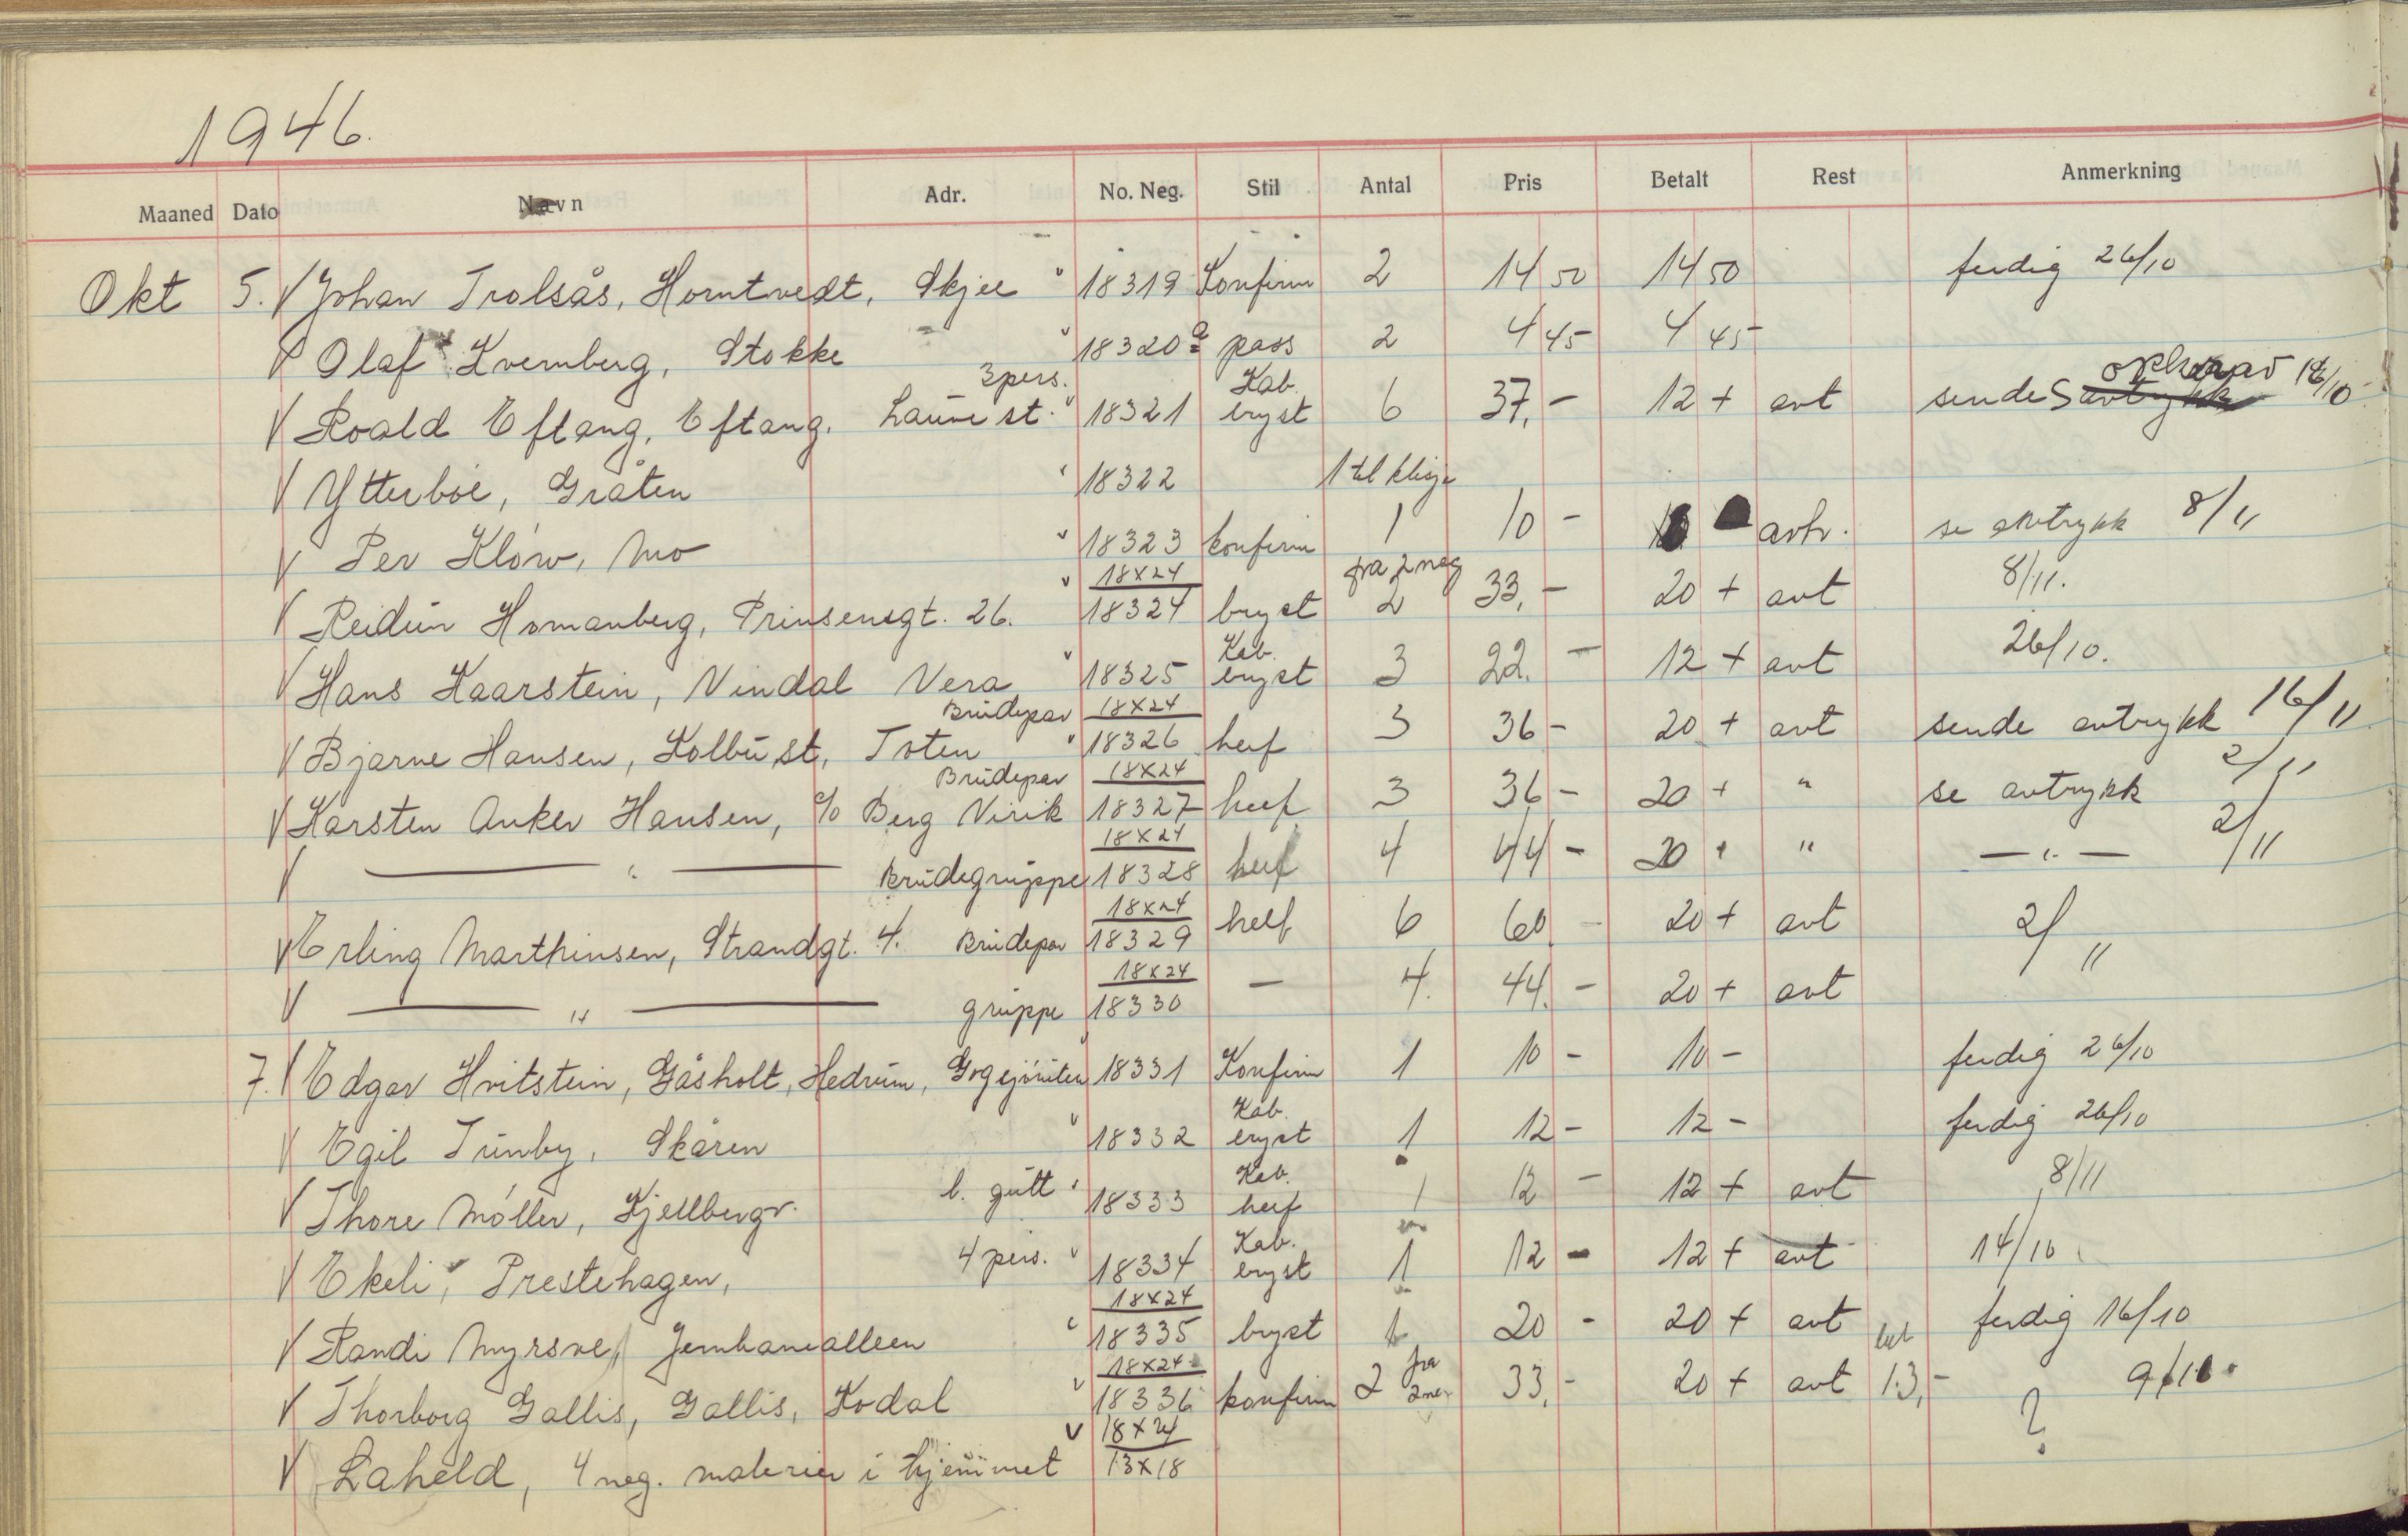 1946.
Maaned Dato Navn Adr. No. Neg. Stil Antal Pris Betalt Rest Anmerkning
Okt 5. V Johan Trolsås, Horntvedt, Skjee " 18319 Konfirm 2 14 50 14 50 ferdig 26/10
V Olaf Kvernberg, Stokke " 18320 a pass 2 4 45 4 45
V Roald Eftang, Eftang, Lauve st. 3 pers. " 18321 Kab. bryst 6 37,- 12 + avt sendes avtrykk 18/10
V Ytterböe, Gråten " 18322 1 til klisje
V Per Klöw, Mo " 18323 konfirm 1 10 - 10 avtr. se avtrykk 8/11
V Reidun Homanberg, Prinsensgt. 26. " 18x24 18324 bryst fra 2 neg 2 33,- 20 + avt 8/11.
V Hans Kaarstein, Vindal Vera " 18325 Kab. bryst 3 22.- 12 + avt 26/10.
V Bjarne Hansen, Kolbu st, Toten Brudepar " 18x24 18326 herf 3 36 - 20 + avt sende avtrykk 16/11
V Karsten Anker Hansen, c/o Berg Virik Brudepar 18x24 18327 herf 3 36 - 20 + " se avtrykk 2/11
V — " — Brudegruppe 18x24 18328 herf 4 44 - 20 + " — " — 2/11
V Erling Marthinsen, Strandgt. 4. Brudepar 18x24 18329 helf 6 60 - 20 + avt 2/11
V — " — gruppe 18x24 18330 — 4. 44. - 20 + avt
7. V Edgar Hvitstein, Gåsholt, Hedrum, " 18331 Konfirm 1 10 - 10 - ferdig 26/10
V Egil Tunby, Skåren " 18332 Kab. bryst 1 12 - 12 - ferdig 26/10
V Thore Möller, Kjellbergv. l. gutt " 18333 Kab. herf 1 12 - 12 + avt 8/11
V Ekeli, Prestehagen, 4 pers. " 18334 Kab. bryst 1 12 - 12 + avt 14/10
V Randi Myrsve, Jernbanealleen " 18x24 18335 bryst 1 20 - 20 + avt ferdig 16/10
V Thorborg Gallis, Gallis, Kodal " 18x24 18336 konfirm 2 fra 2 neg 33,- 20 + avt bet 13,- 9/10
V Laheld, 4 neg. malerier i hjemmet V 18x24 13x18 ?